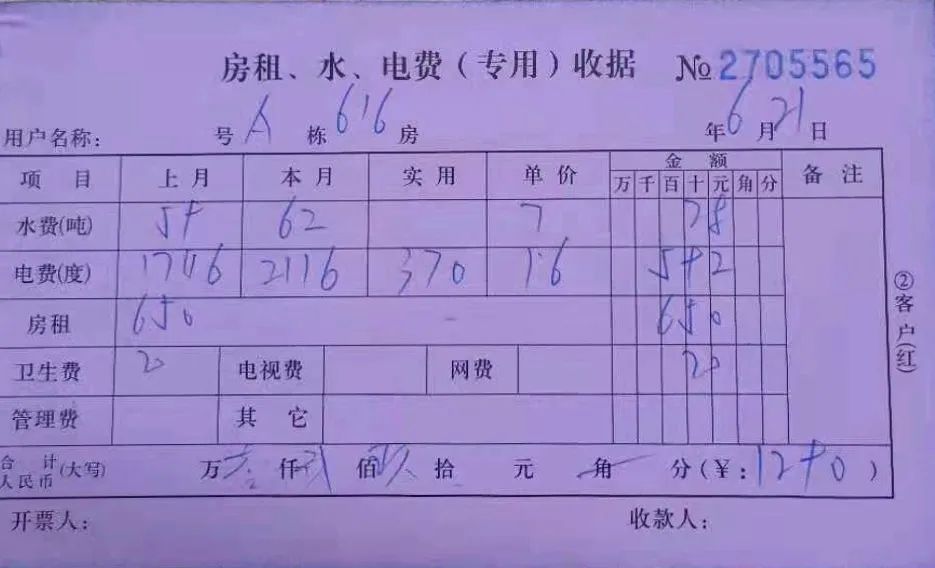 房租、水、电费(专用)收据 № 2705565
用户名称: 号 A 栋 616 房 年 6 月 21 日
项目 上月 本月 实用 单价 金额 备注
万 千 百 十 元 角 分
水费(吨) 59 62 7 28
电费(度) 1746 2116 370 1.6 592
房租 650 650
卫生费 20 电视费 网费 20
管理费 其它
合计人民币(大写) 万 壹 仟 贰 佰 玖 拾 元 角 分(¥:1290)
开票人: 收款人:
②客户(红)